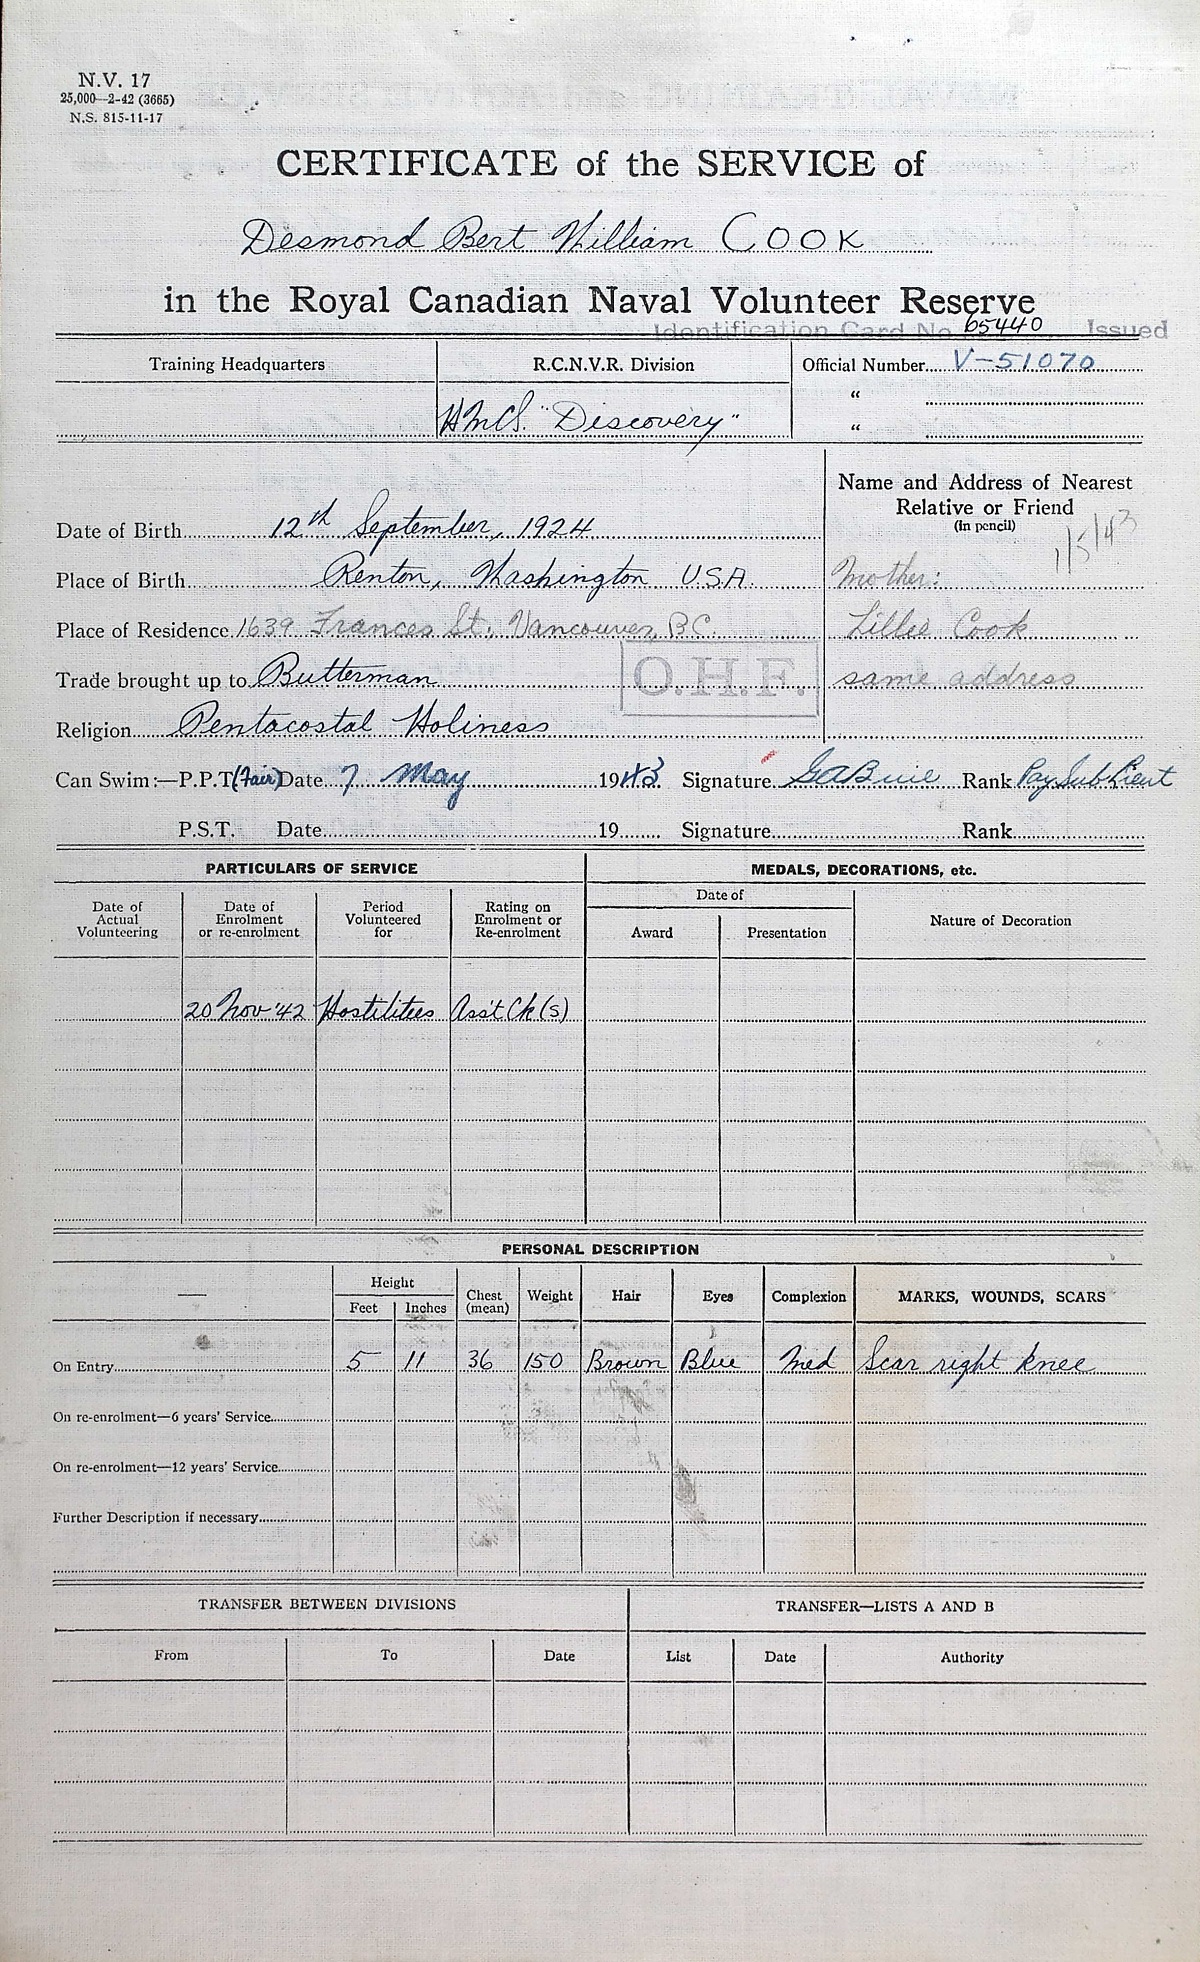 N.V. 17
25,000—2-42 (3665)
N.S. 815-11-17
CERTIFICATE of the SERVICE of
Desmond Bert William COOK
in the Royal Canadian Naval Volunteer Reserve
Identification Card No. 65440 Issued
Training Headquarters R.C.N.V.R. Division Official Number V-51070
"
HMCS. "Discovery" "
Name and Address of Nearest
Relative or Friend
(in pencil)
1/5/43
Date of Birth 12th September, 1924
Place of Birth Renton, Washington U.S.A. Mother:
Place of Residence 1639 Frances St. Vancouver, BC Lillie Cook
Trade brought up to Butterman O.H.F. same address
Religion Pentacostal Holiness
Can Swim:—P.P.T. (Fair) Date 7 May 1943 Signature GABuie Rank Pay Sub Lieut
P.S.T. Date 19 Signature Rank
PARTICULARS OF SERVICE MEDALS, DECORATIONS, etc.
Date of Actual Volunteering Date of Enrolment or re-enrolment Period Volunteered for Rating on Enrolment or Re-enrolment Date of Award Presentation Nature of Decoration
20 Nov '42 Hostilities Ass't Ck (s)
PERSONAL DESCRIPTION
— Height Feet Inches Chest (mean) Weight Hair Eyes Complexion MARKS, WOUNDS, SCARS
On Entry 5 11 36 150 Brown Blue Med Scar right knee
On re-enrolment—6 years' Service
On re-enrolment—12 years' Service
Further Description if necessary
TRANSFER BETWEEN DIVISIONS TRANSFER—LISTS A AND B
From To Date List Date Authority